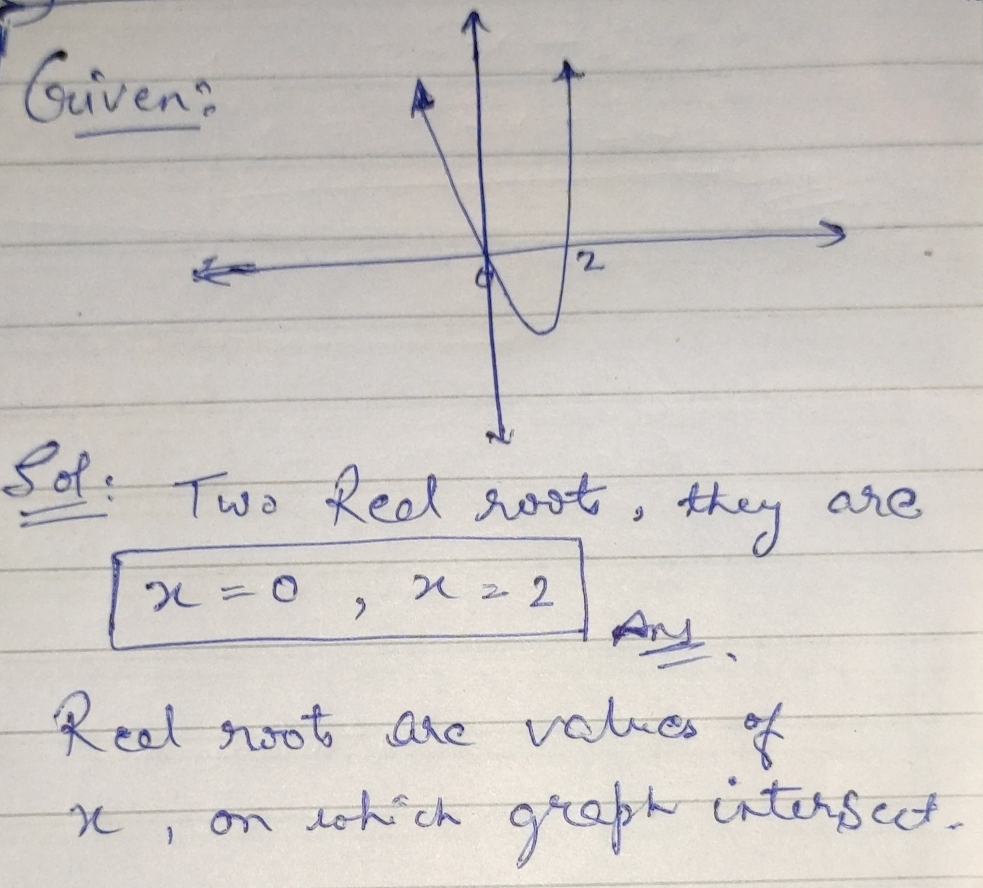 Given:
0 2
Sol: Two Real root, they are
x = 0 , x = 2
Ans.
Real root are values of
x , on which graph intersect.